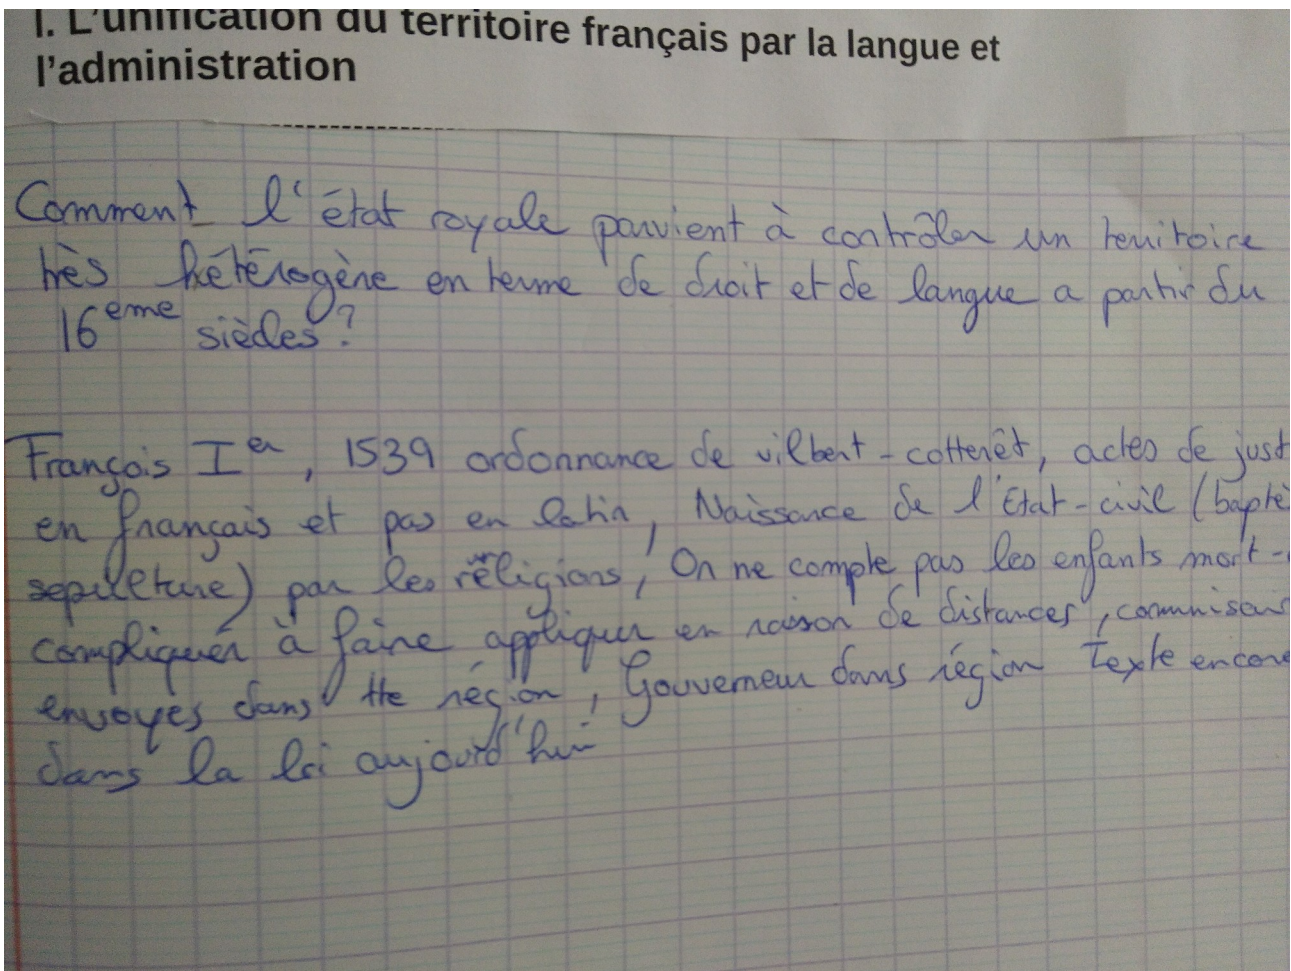 I. L'unification du territoire français par la langue et
l'administration
Comment l'état royale parvient à contrôler un territoire
très hétérogène en terme de droit et de langue a partir du
16eme siècles ?
François Ier, 1539 ordonnance de vilbert-cotterêt, actes de just
en français et pas en latin, Naissance de l'Etat-civil (baptê
sepulcture) par les réligions, On ne compte pas les enfants mort-
compliquer à faire appliquer en raison de distances, commisai
envoyes dans tte région, Gouverneur dans région Texte encore
dans la loi aujourd'hui